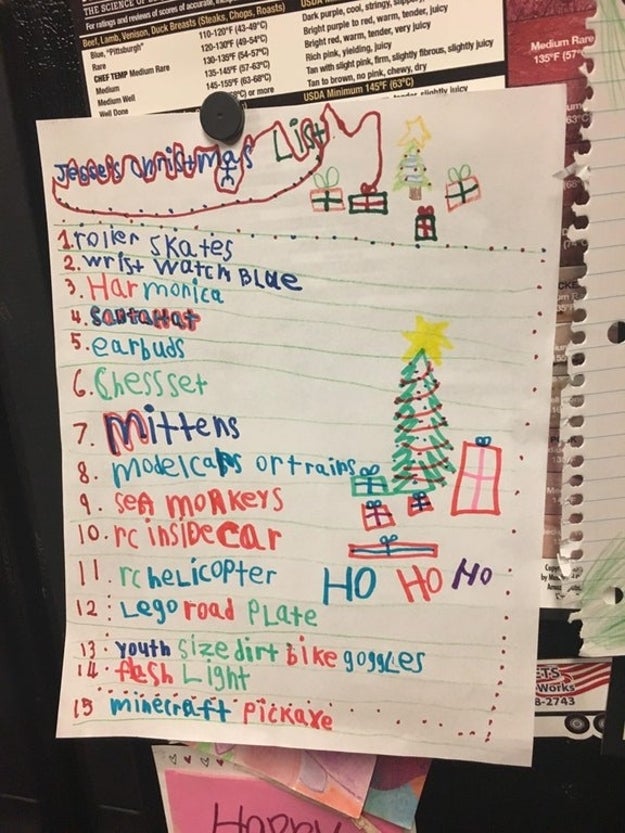 THE SCIENCE OF
For ratings and reviews of scores of accurate,
Beef, Lamb, Venison, Duck Breasts (Steaks, Chops, Roasts)
Blue, "Pittsburgh" 110-120°F (43-49°C) Dark purple, cool, stringy,
Rare 120-130°F (49-54°C) Bright purple to red, warm, tender, juicy
CHEF TEMP Medium Rare 130-135°F (54-57°C) Bright red, warm, tender, very juicy
Medium 135-145°F (57-63°C) Rich pink, yielding, juicy
Medium Well 145-155°F (63-68°C) Tan with slight pink, firm, slightly fibrous, slightly juicy
Well Done °C) or more Tan to brown, no pink, chewy, dry
USDA Minimum 145°F (63°C)
Medium Rare
135°F (57°
Jesse's christmas List
1. roller skates
2. wrist watch BLUE
3. Harmonica
4. Santa Hat
5. earbuds
6. Chess set
7. Mittens
8. model cars or trains
9. sea monkeys
10. rc inside car
11. rc heLicopter
HO HO Ho
12. Lego road PLate
13. youth size dirt bike goggLes
14. flash Light
15 minecraft pickaxe
ETS
Works
8-2743
Happy